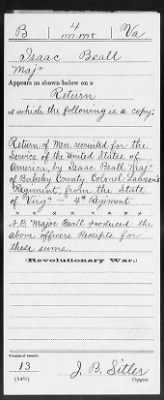 B | 4 | Va
1777-1778
Isaac Beall
Maj
Appears as shown below on a
Return
of which the following is a copy:
Return of Men recruited for the
Service of the United States of
America, by Isaac Beall Maj
of Berkeley County Colonel Lawson's
Regiment, from the State
of Virg — 4th Regiment
x x x x x x x x
N.B. Major Beall produced the
above officers Receipts for
these sums.
(Revolutionary War.)
Number of record:
13
(545)
J. B. Sitler
Copyist.